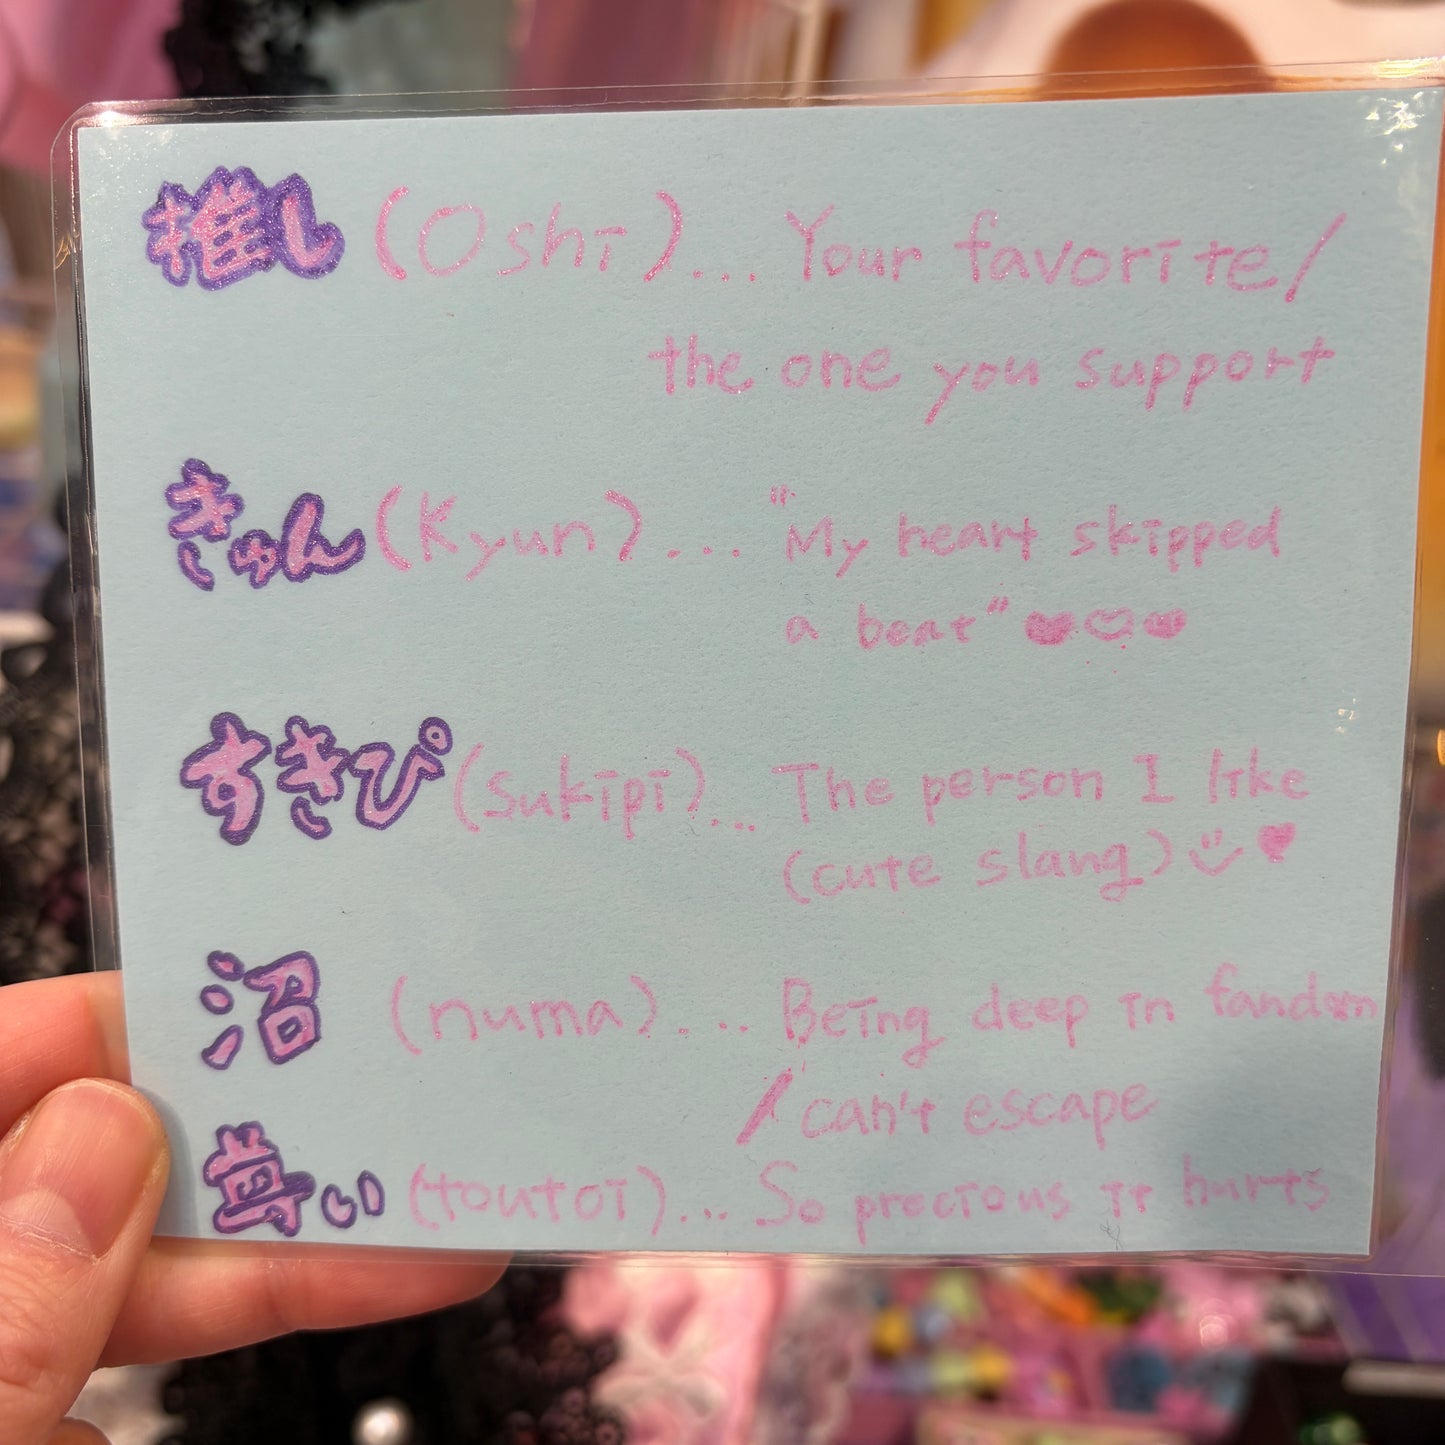 推し (Oshi)... Your favorite/
the one you support
きゅん (Kyun)... "My heart skipped
a beat" ♥♡♥
すきぴ (sukipi)... The person I like
(cute slang) ♥
沼 (numa)... Being deep in fandom
/can't escape
尊い (toutoi)... So precious it hurts